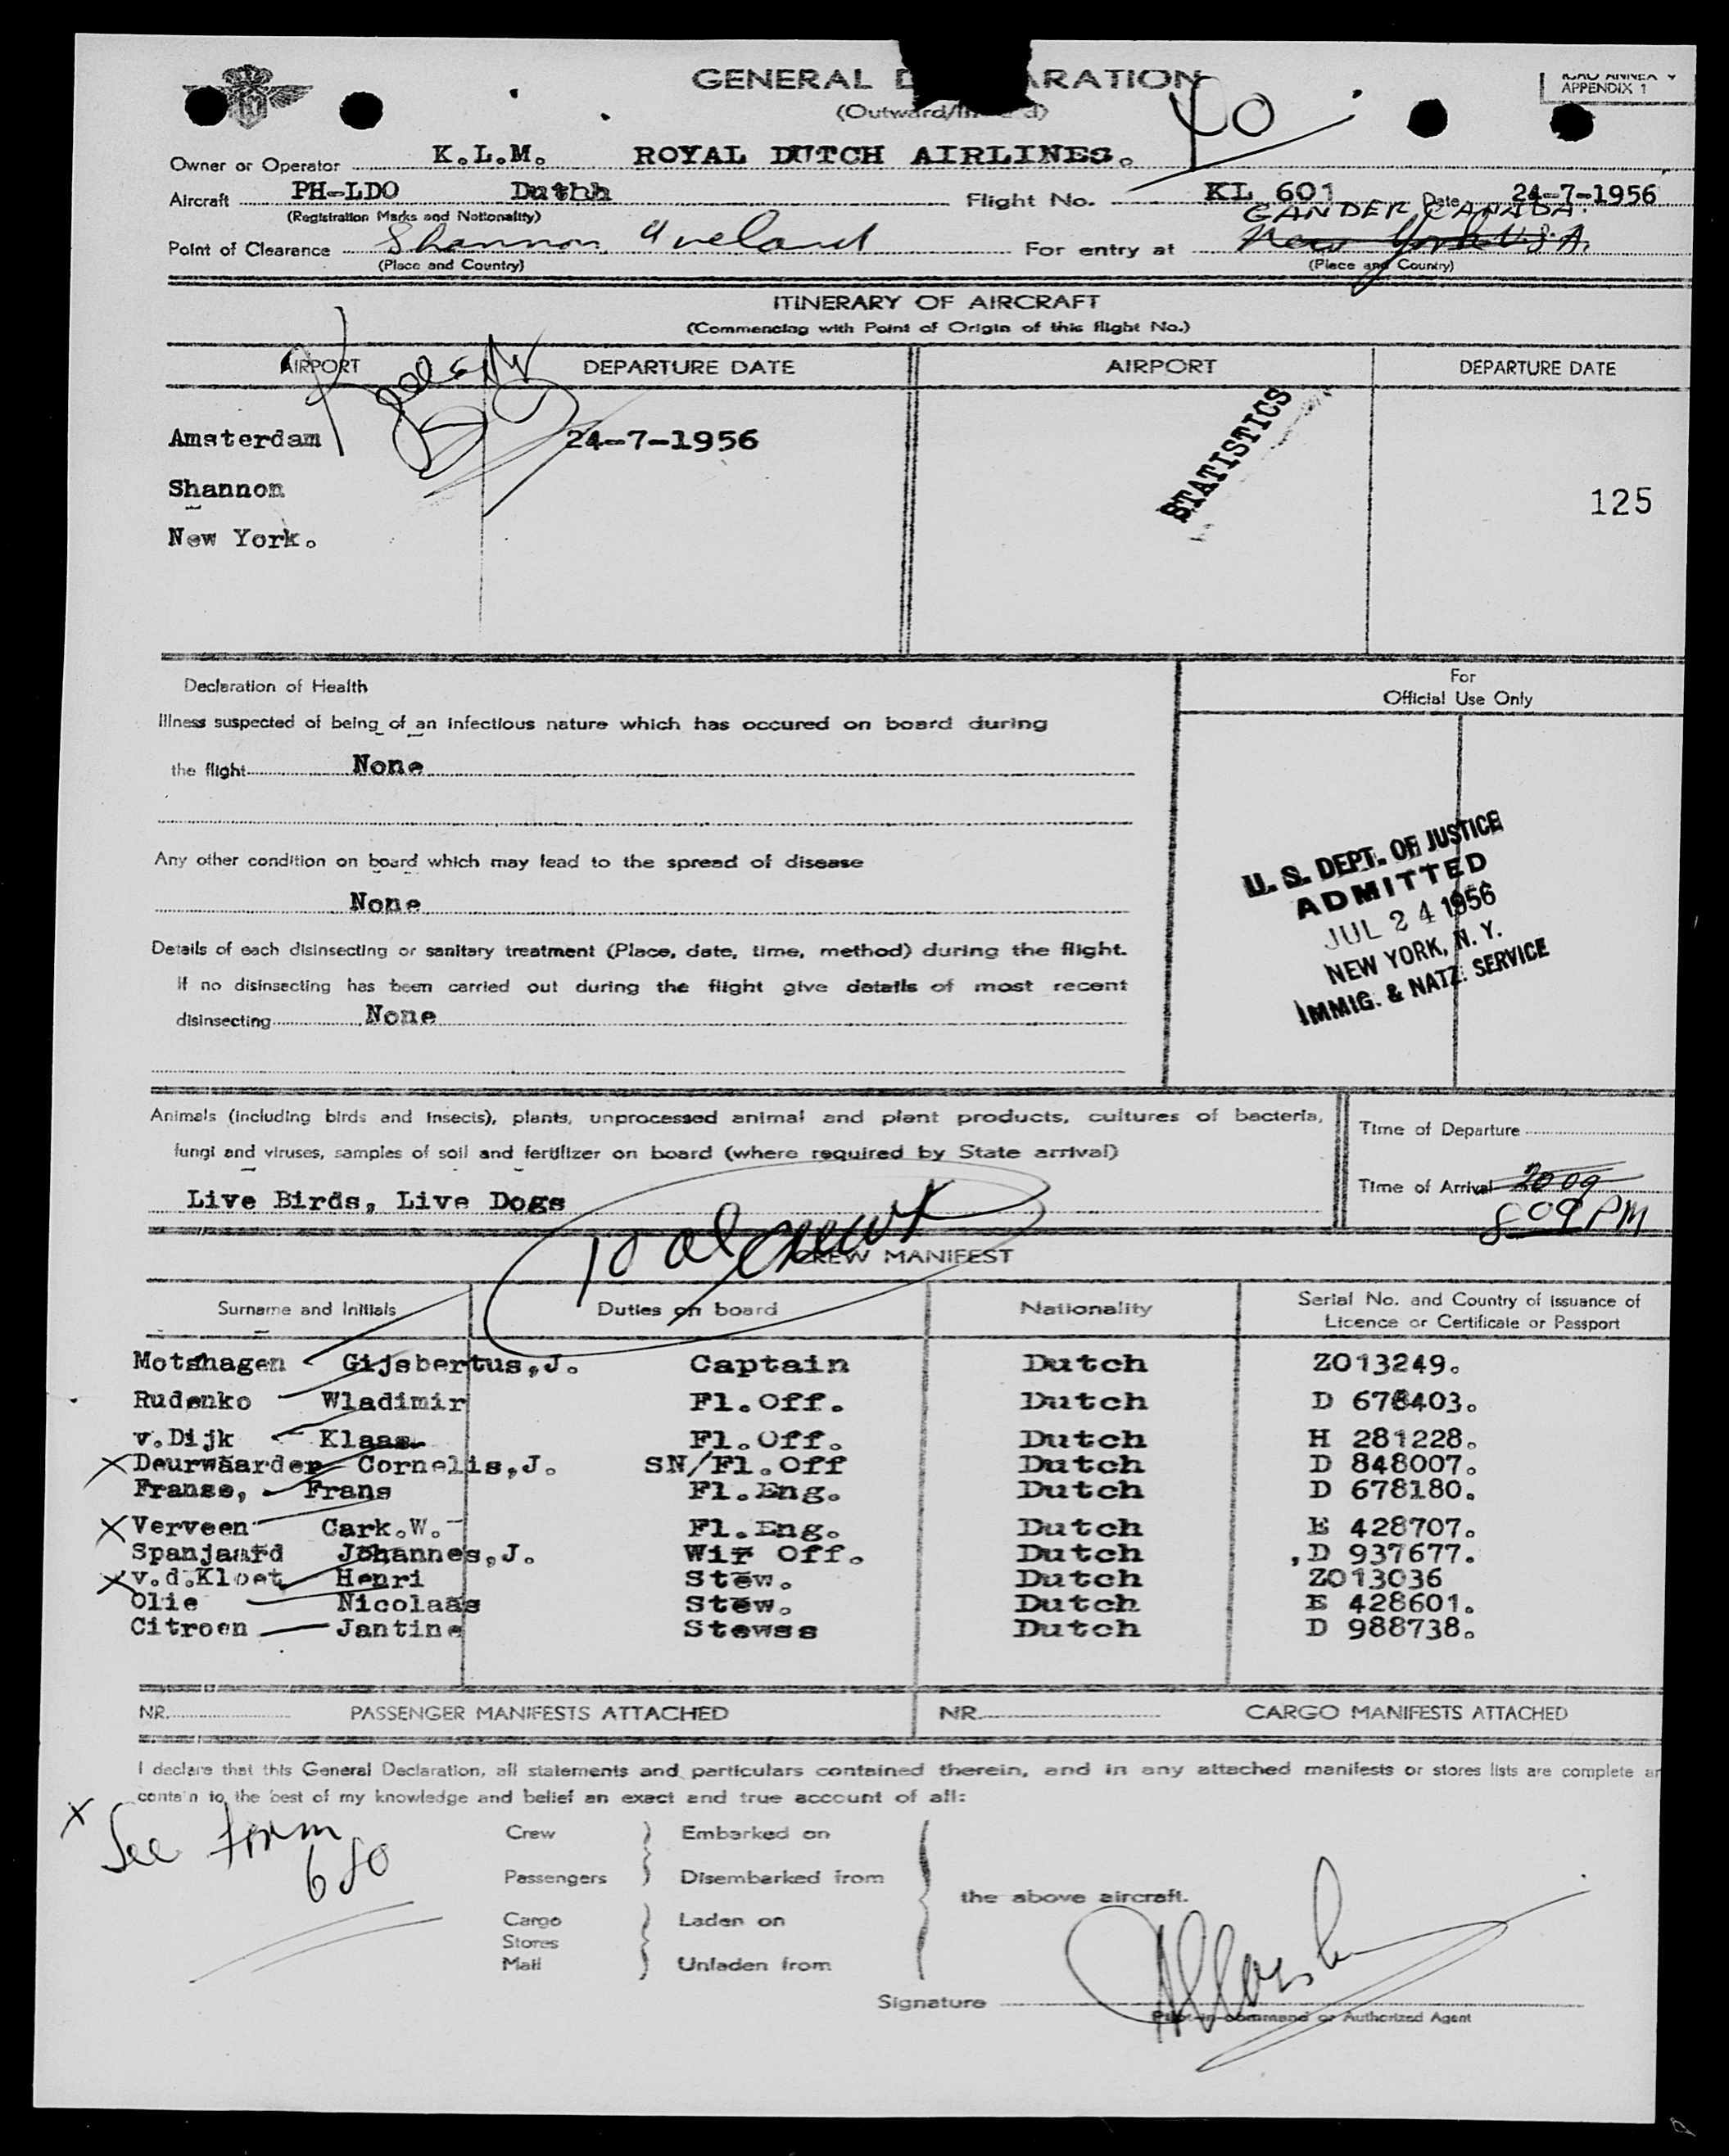 GENERAL D RATION
(Outward/In d)
ICAO ANNEX 9
APPENDIX 1
40
Owner or Operator K.L.M. ROYAL DUTCH AIRLINES.
Aircraft PH-LDO Dutbh Flight No. KL 601 Date 24-7-1956
(Registration Marks and Nationality)
GANDER, CANADA.
Point of Clearance Shannon Ireland For entry at New York U.S.A.
(Place and Country) (Place and Country)
ITINERARY OF AIRCRAFT
(Commencing with Point of Origin of this flight No.)
AIRPORT DEPARTURE DATE AIRPORT DEPARTURE DATE
Amsterdam 24-7-1956
STATISTICS
Shannon
125
New York.
Declaration of Health
For
Official Use Only
Illness suspected of being of an infectious nature which has occured on board during
the flight None
Any other condition on board which may lead to the spread of disease
None
Details of each disinsecting or sanitary treatment (Place, date, time, method) during the flight.
If no disinsecting has been carried out during the flight give details of most recent
disinsecting None
U. S. DEPT. OF JUSTICE
ADMITTED
JUL 24 1956
NEW YORK, N. Y.
IMMIG. & NATZ. SERVICE
Animals (including birds and insects), plants, unprocessed animal and plant products, cultures of bacteria,
fungi and viruses, samples of soil and fertilizer on board (where required by State arrival)
Live Birds, Live Dogs
Time of Departure
Time of Arrival 2009
8 09 PM
10 al Crew
CREW MANIFEST
Surname and Initials Duties on board Nationality Serial No. and Country of Issuance of
Licence or Certificate or Passport
Motshagen Gijsbertus,J. Captain Dutch ZO13249.
Rudenko Wladimir Fl.Off. Dutch D 678403.
v.Dijk Klaas Fl.Off. Dutch H 281228.
X Deurwaarder Cornelis,J. SN/Fl.Off Dutch D 848007.
Franse, Frans Fl.Eng. Dutch D 678180.
X Verveen Cark.W. Fl.Eng. Dutch E 428707.
Spanjaard Johannes,J. Wir Off. Dutch ,D 937677.
X v.d.Kloet Henri Stew. Dutch ZO13036
Olie Nicolaas Stew. Dutch E 428601.
Citroen Jantine Stewss Dutch D 988738.
NR. PASSENGER MANIFESTS ATTACHED NR. CARGO MANIFESTS ATTACHED
I declare that this General Declaration, all statements and particulars contained therein, and in any attached manifests or stores lists are complete an
contain to the best of my knowledge and belief an exact and true account of all:
X See form
680
Crew } Embarked on
Passengers } Disembarked from
the above aircraft.
Cargo } Laden on
Stores
Mail } Unladen from
Signature
Pilot-in-command or Authorized Agent